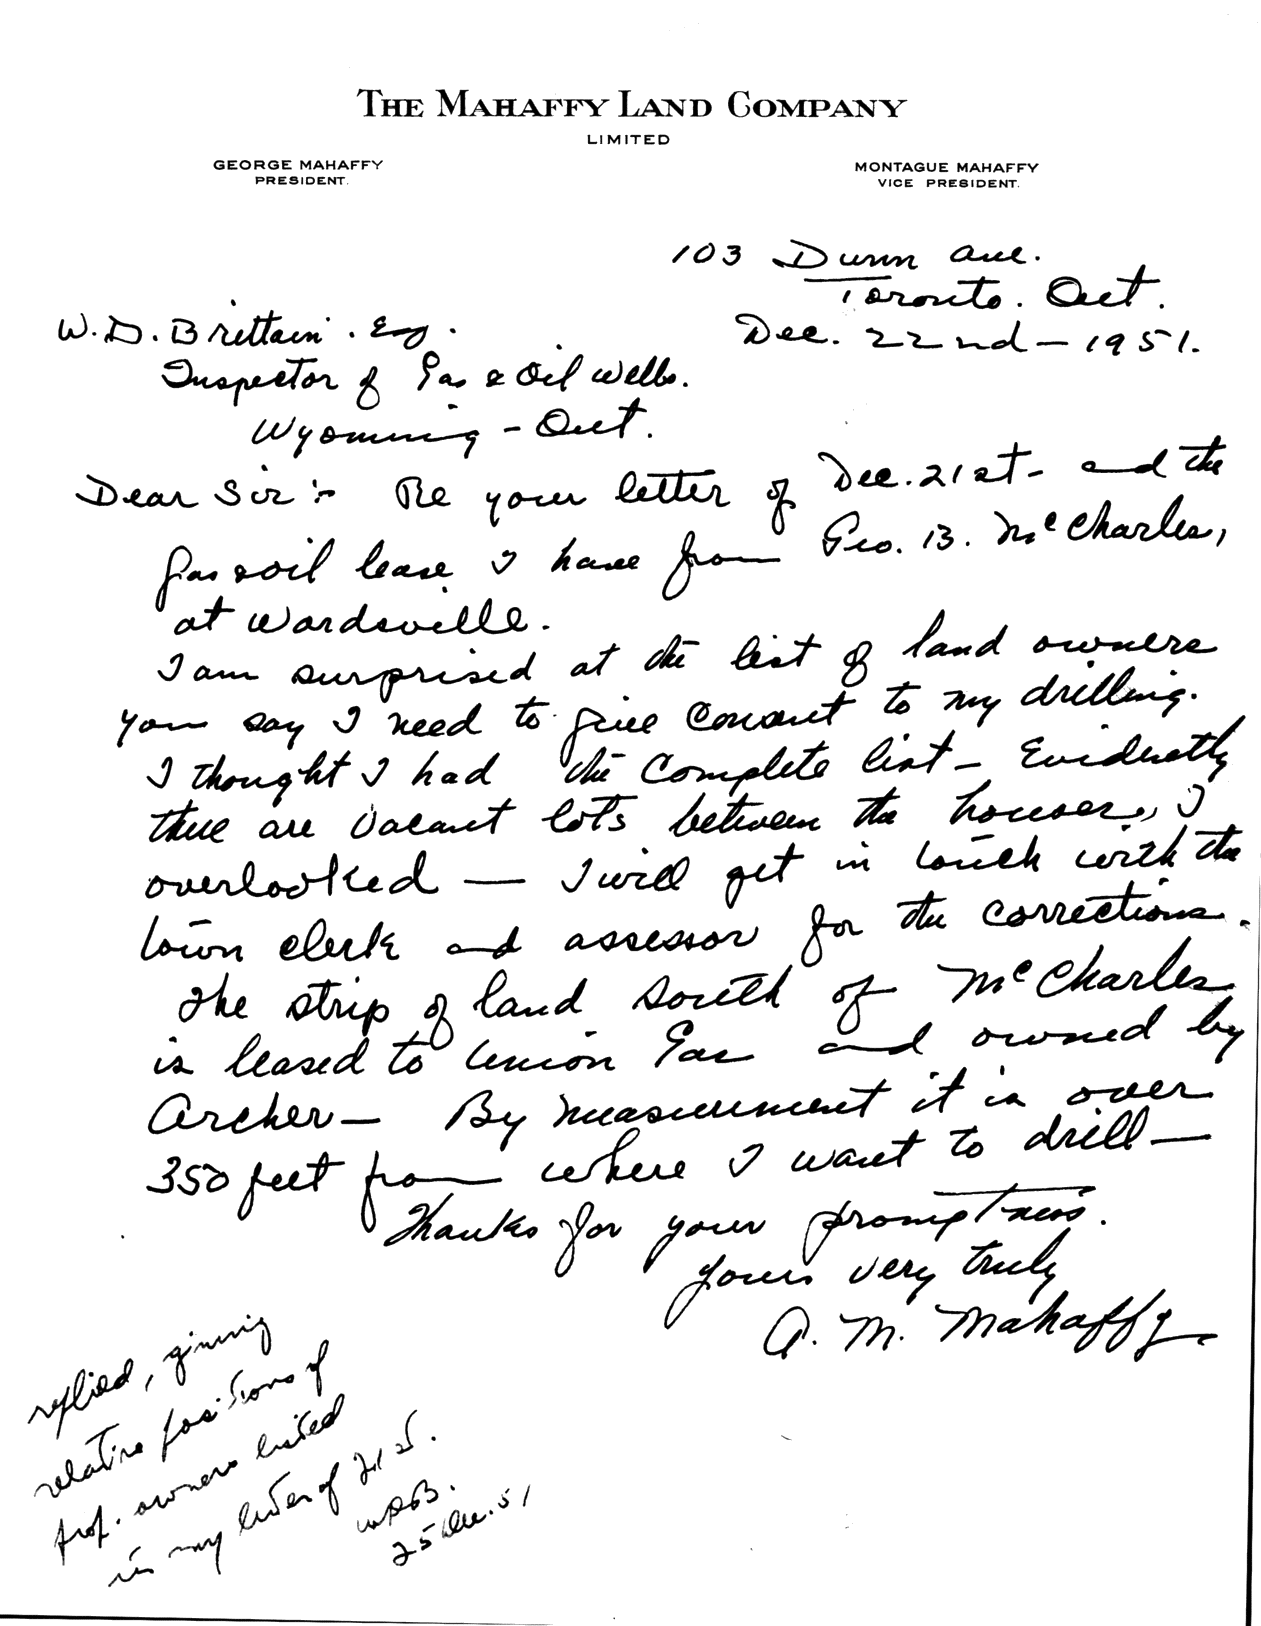 THE MAHAFFY LAND COMPANY
LIMITED
GEORGE MAHAFFY
PRESIDENT.
MONTAGUE MAHAFFY
VICE PRESIDENT.
103 Dunn Ave.
Toronto. Ont.
Dec. 22nd - 1951.
W. D. Brittain. Esq.
Inspector of Gas & Oil Wells.
Wyoming - Ont.
Dear Sir :- Re your letter of Dec. 21st - and the
gas & oil lease I have from Geo. B. McCharles,
at Wardsville.
I am surprised at the list of land owners
you say I need to give consent to my drilling.
I thought I had the complete list - Evidently
there are vacant lots between the houses, I
overlooked — I will get in touch with the
town clerk and assessor for the corrections.
The strip of land south of McCharles
is leased to Union Gas and owned by
Archer — By measurement it is over
350 feet from where I want to drill —
Thanks for your promptness.
Yours very truly
A. M. Mahaffy
replied, giving
relative positions of
prop. owners listed
in my letter of 21st.
WDB.
25 Dec. 51